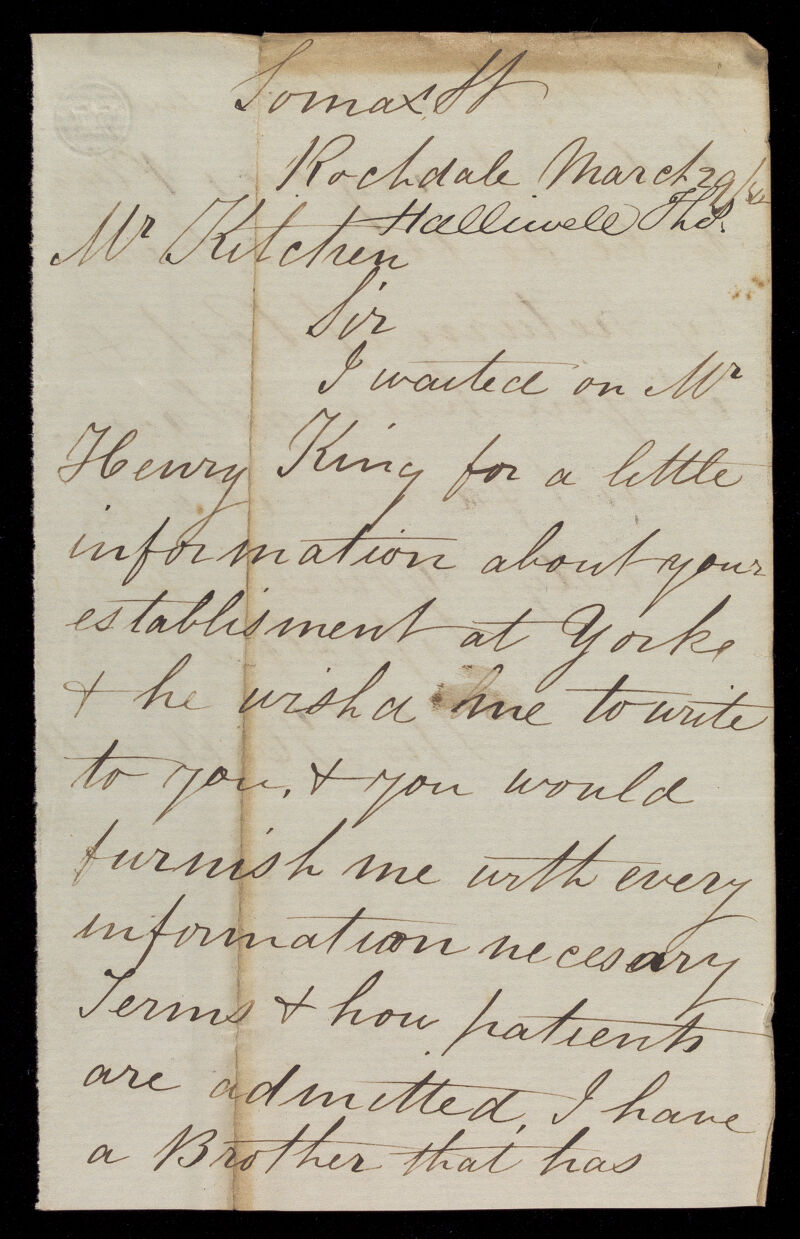 Lomax St
Rochdale March 29/
Halliwell Thos.
Mr Kitchen
Sir
I waited on Mr
Henry King for a little
information about your
establisment at Yorke
& he wishd me to write
to you, & you would
furnish me with every
information necesary
Terms & how patients
are admitted, I have
a Brother that has